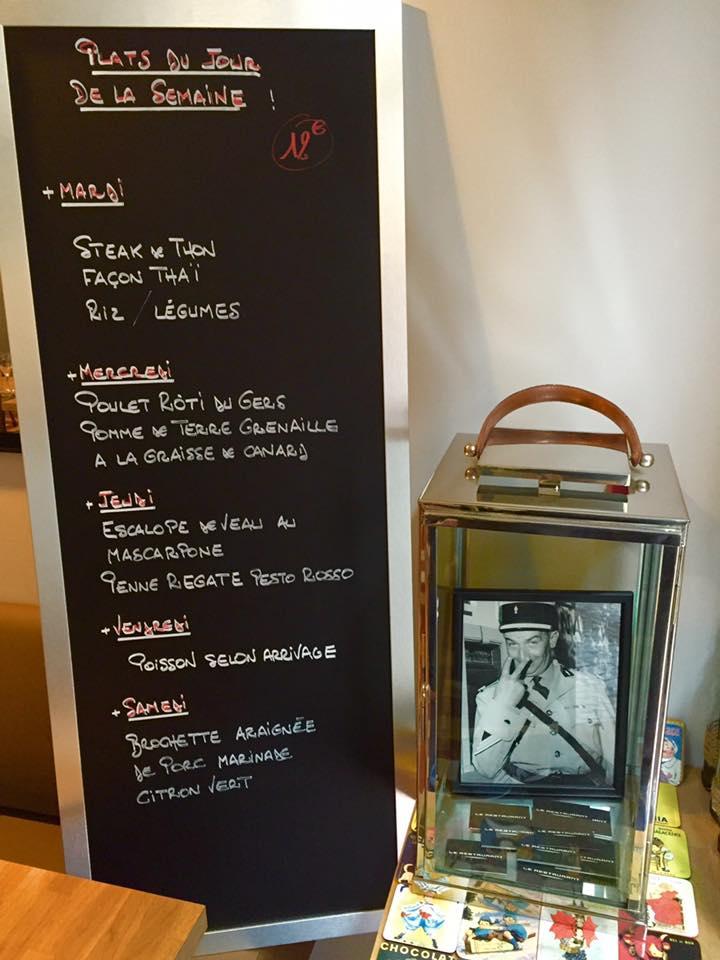 PLATS DU JOUR
DE LA SEMAINE !
12€
+ MARDI
STEAK de THON
FAÇON THAÏ
RIZ / LÉGUMES
+ MERCREDI
POULET RÔTI DU GERS
POMME de TERRE GRENAILLE
A LA GRAISSE de CANARD
+ JEUDI
ESCALOPE de VEAU AU
MASCARPONE
PENNE RIEGATE PESTO ROSSO
+ VENDREDI
POISSON SELON ARRIVAGE
+ SAMEDI
BROCHETTE ARAIGNÉE
de PORC MARINADE
CITRON VERT
LE RESTAURANT
LE RESTAURANT
LE RESTAURANT
CHOCOLAT